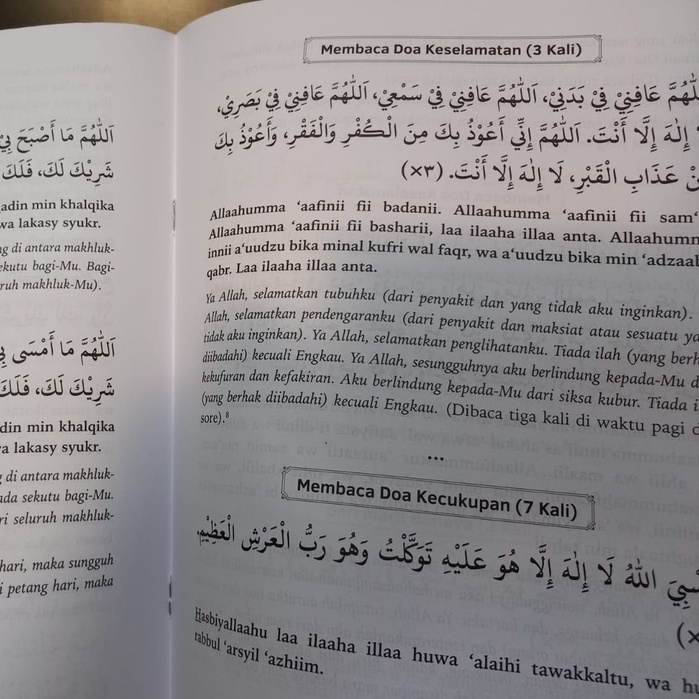 اَللّٰهُمَّ مَا أَصْبَحَ بِيْ
شَرِيْكَ لَكَ، فَلَكَ
adin min khalqika
wa lakasy syukr.
ng di antara makhluk-
sekutu bagi-Mu. Bagi-
uruh makhluk-Mu).
اَللّٰهُمَّ مَا أَمْسَى بِيْ
شَرِيْكَ لَكَ، فَلَكَ
adin min khalqika
wa lakasy syukr.
g di antara makhluk-
ada sekutu bagi-Mu.
ri seluruh makhluk-
hari, maka sungguh
i petang hari, maka
Membaca Doa Keselamatan (3 Kali)
عَافِنِيْ فِيْ بَدَنِيْ، اَللّٰهُمَّ عَافِنِيْ فِيْ سَمْعِيْ، اَللّٰهُمَّ عَافِنِيْ فِيْ بَصَرِيْ،
إِلٰهَ إِلَّا أَنْتَ. اَللّٰهُمَّ إِنِّي أَعُوْذُ بِكَ مِنَ الْكُفْرِ وَالْفَقْرِ، وَأَعُوْذُ بِكَ
عَذَابِ الْقَبْرِ، لَا إِلٰهَ إِلَّا أَنْتَ. (×٣)
Allaahumma ‘aafinii fii badanii. Allaahumma ‘aafinii fii sam‘
Allaahumma ‘aafinii fii basharii, laa ilaaha illaa anta. Allaahumm
innii a‘uudzu bika minal kufri wal faqr, wa a‘uudzu bika min ‘adzaab
qabr. Laa ilaaha illaa anta.
Ya Allah, selamatkan tubuhku (dari penyakit dan yang tidak aku inginkan).
Allah, selamatkan pendengaranku (dari penyakit dan maksiat atau sesuatu ya
tidak aku inginkan). Ya Allah, selamatkan penglihatanku. Tiada ilah (yang berh
diibadahi) kecuali Engkau. Ya Allah, sesungguhnya aku berlindung kepada-Mu d
kekufuran dan kefakiran. Aku berlindung kepada-Mu dari siksa kubur. Tiada i
(yang berhak diibadahi) kecuali Engkau. (Dibaca tiga kali di waktu pagi d
sore).⁸
•••
Membaca Doa Kecukupan (7 Kali)
اللهُ لَا إِلٰهَ إِلَّا هُوَ عَلَيْهِ تَوَكَّلْتُ وَهُوَ رَبُّ الْعَرْشِ الْعَظِيْمِ.
Hasbiyallaahu laa ilaaha illaa huwa ‘alaihi tawakkaltu, wa hu
rabbul ‘arsyil ‘azhiim.